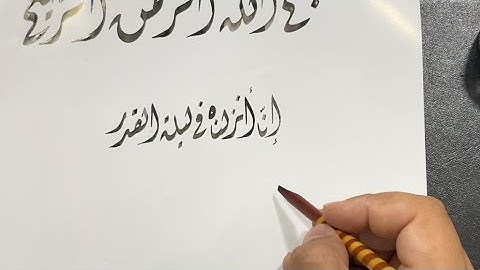 الله الرحمن الرحيم
إنا أنزلناه في ليلة القدر